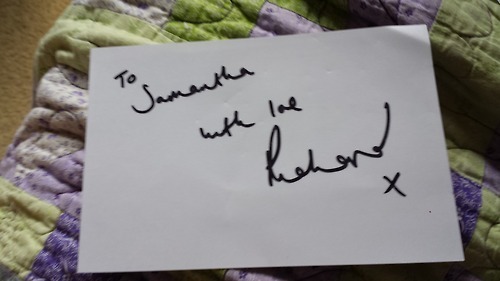 To
Samantha
with love
Richard
X